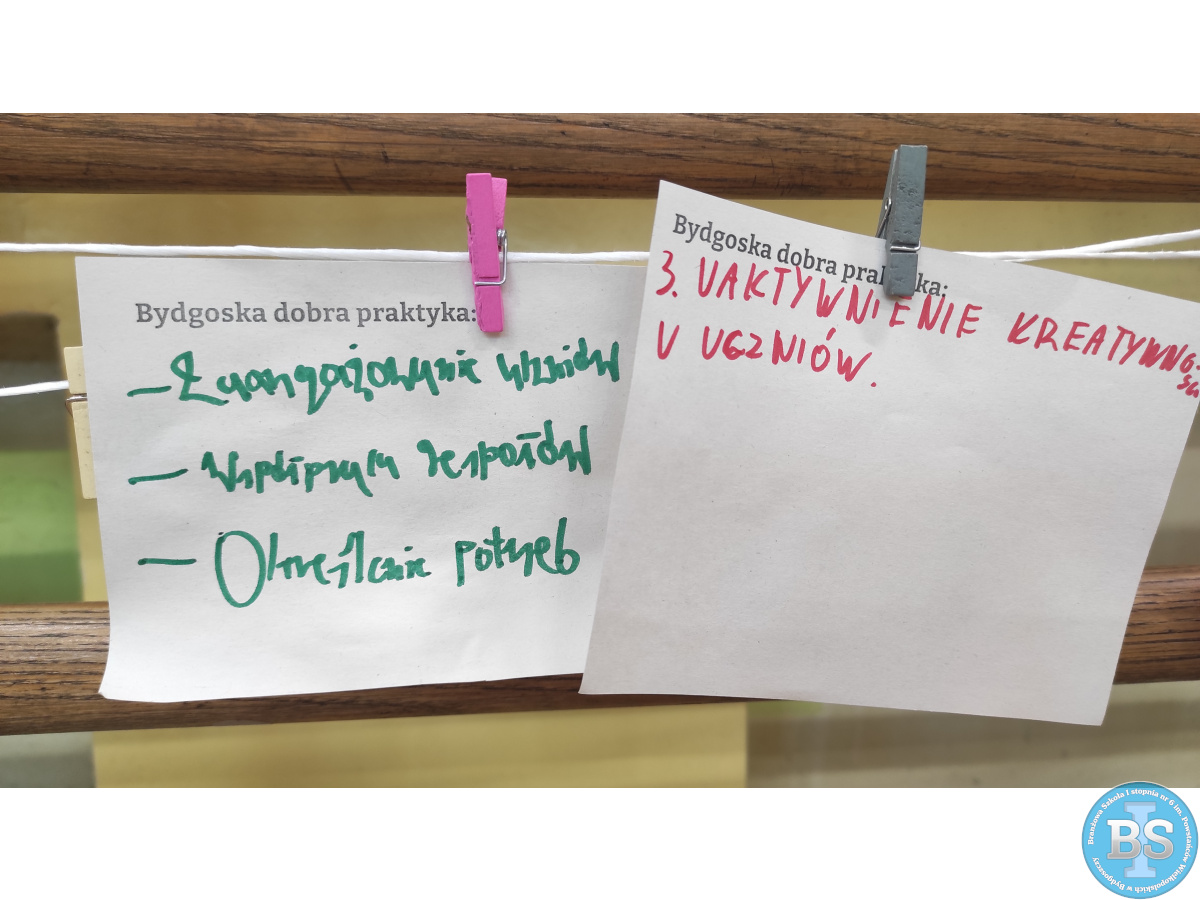 Bydgoska dobra praktyka:
– Zaangażowanie uczniów
– Współpraca zespołów
– Określenie potrzeb
Bydgoska dobra praktyka:
3. UAKTYWNIENIE KREATYWNO-
ŚCI
U UCZNIÓW.
Branżowa Szkoła I stopnia nr 6 im. Powstańców Wielkopolskich w Bydgoszczy
I
BS